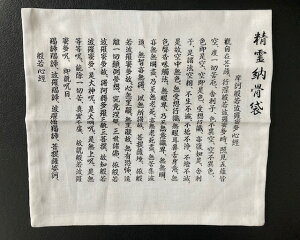 精霊納骨袋
摩訶般若波羅蜜多心経
観自在菩薩。行深般若波羅蜜多時。照見五蘊皆
空。度一切苦厄。舎利子。色不異空。空不異色。
色即是空。空即是色。受想行識。亦復如是。舎利
子。是諸法空相。不生不滅。不垢不浄。不増不減。
是故空中無色。無受想行識。無眼耳鼻舌身意。無
色声香味触法。無眼界。乃至無意識界。無無明。
亦無無明尽。乃至無老死。亦無老死尽。無苦集滅
道。無智亦無得。以無所得故。菩提薩埵。依般
若波羅蜜多故。心無罣礙。無罣礙故。無有恐怖。遠
離一切顛倒夢想。究竟涅槃。三世諸佛。依般若
波羅蜜多故。得阿耨多羅三藐三菩提。故知般若
波羅蜜多。是大神呪。是大明呪。是無上呪。是無
等等呪。能除一切苦。真実不虚。故説般若波羅
蜜多呪。即説呪曰。
羯諦羯諦。波羅羯諦。波羅僧羯諦。菩提薩婆訶。
般若心経